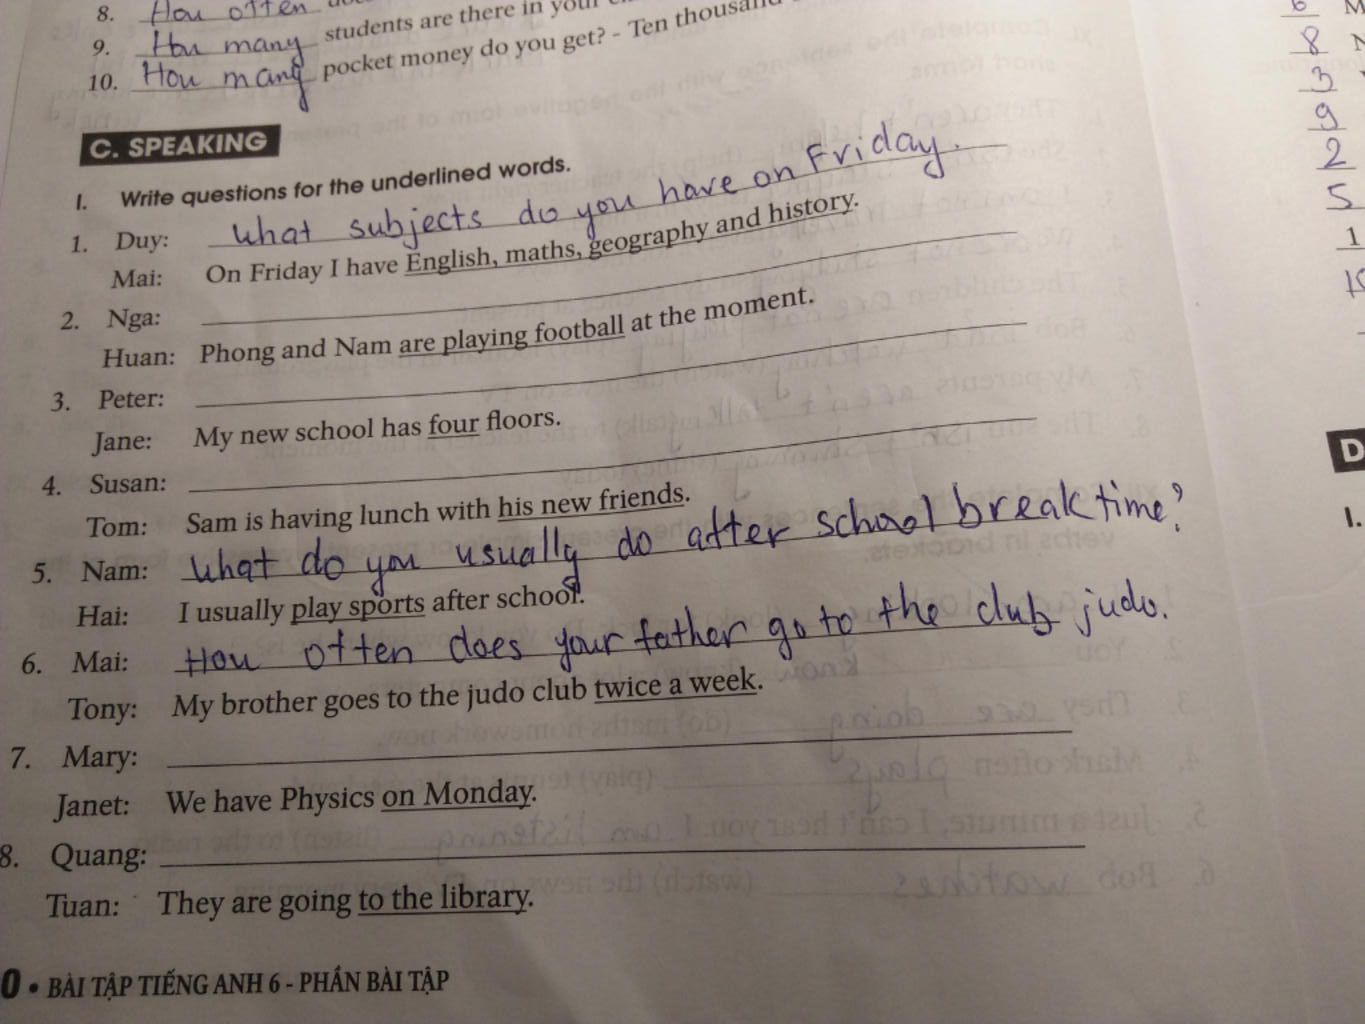 8. How often
9. How many students are there in your
10. How many pocket money do you get? - Ten thousand
C. SPEAKING
I. Write questions for the underlined words.
1. Duy: What subjects do you have on Friday.
Mai: On Friday I have English, maths, geography and history.
2. Nga:
Huan: Phong and Nam are playing football at the moment.
3. Peter:
Jane: My new school has four floors.
4. Susan:
Tom: Sam is having lunch with his new friends.
5. Nam: What do you usually do after school break time?
Hai: I usually play sports after school.
6. Mai: How often does your father go to the club judo.
Tony: My brother goes to the judo club twice a week.
7. Mary:
Janet: We have Physics on Monday.
8. Quang:
Tuan: They are going to the library.
0 • BÀI TẬP TIẾNG ANH 6 - PHẦN BÀI TẬP
6
8
3
9
2
5
1
10
D
I.